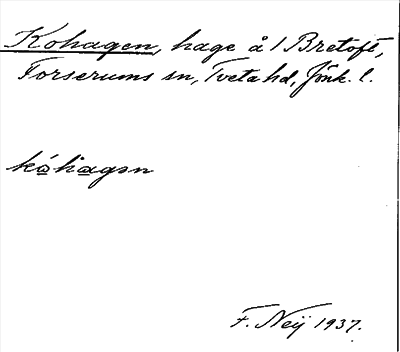 Kohagen, hage å 1 Bretoft,
Forserums sn, Tveta hd, Jönk. l.
kóhagən
F. Neij 1937.